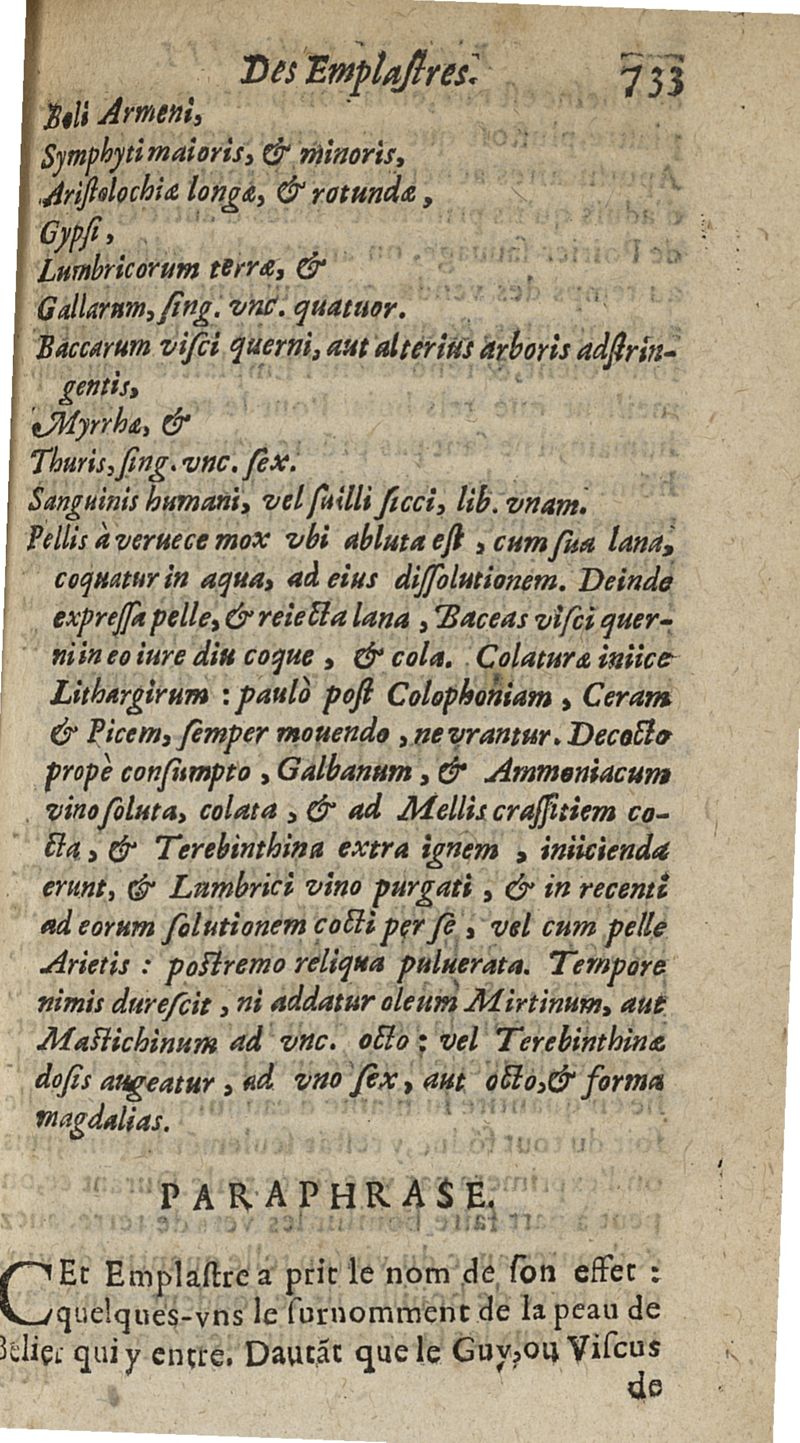 Des Emplaſtres. 733
Boli Armeni,
Symphyti maioris, & minoris,
Ariſtolochiæ longæ, & rotundæ,
Gypſi,
Lumbricorum terræ, &
Gallarum, ſing. vnc. quatuor.
Baccarum viſci querni, aut alterius arboris adſtrin-
gentis,
Myrrhæ, &
Thuris, ſing. vnc. ſex.
Sanguinis humani, vel ſuilli ſicci, lib. vnam.
Pellis à veruece mox vbi abluta eſt, cum ſua lana,
coquatur in aqua, ad eius diſſolutionem. Deinde
expreſſa pelle, & reiecta lana, Baccas viſci quer-
ni in eo iure diu coque, & cola. Colaturæ iniice
Lithargirum : paulò poſt Colophoniam, Ceram
& Picem, ſemper mouendo, ne vrantur. Decocto
propè conſumpto, Galbanum, & Ammoniacum
vino ſoluta, colata, & ad Mellis craſſitiem co-
cta, & Terebinthina extra ignem, iniicienda
erunt, & Lumbrici vino purgati, & in recenti
ad eorum ſolutionem cocti per ſe, vel cum pelle
Arietis : poſtremo reliqua puluerata. Tempore
nimis dureſcit, ni addatur oleum Mirtinum, aut
Maſtichinum ad vnc. octo : vel Terebinthinæ
doſis augeatur, ad vno ſex, aut octo, & forma
magdalias.
PARAPHRASE.
CEt Emplaſtre a prit le nom de ſon effet :
quelques-vns le ſurnomment de la peau de
Belier qui y entre. Dautãt que le Guy, ou Viſcus
de